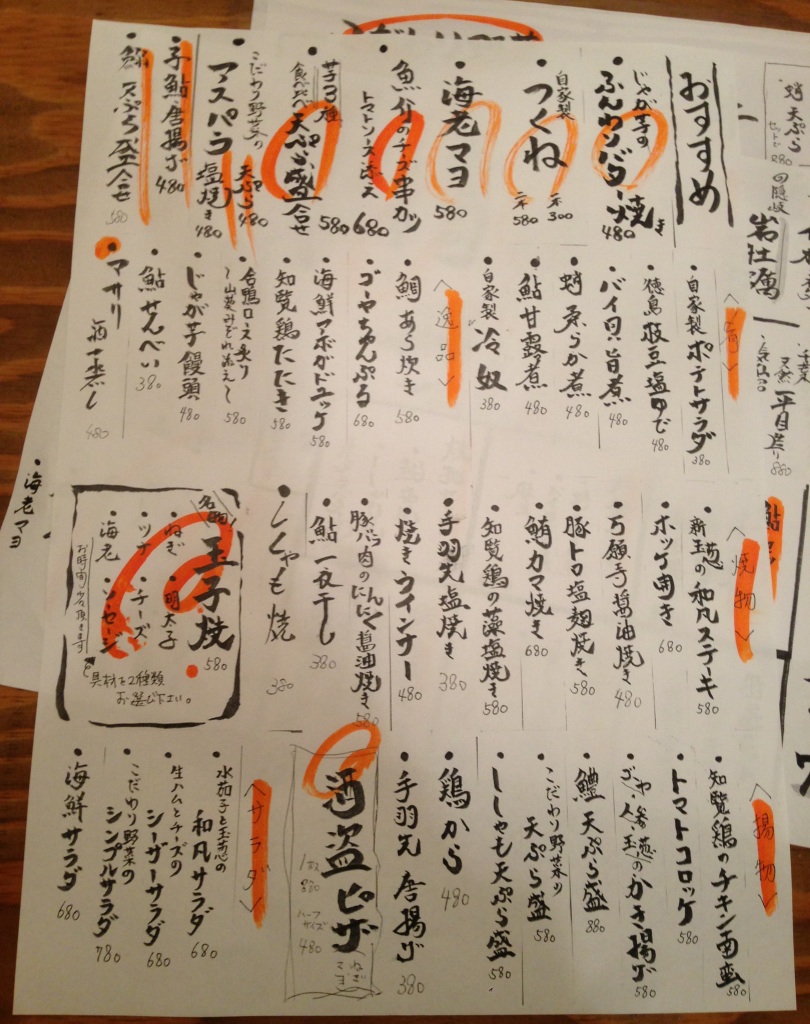 おすすめ
じゃが芋の
ふんわりバター焼き
480
自家製
つくね
一本 300
二本 580
海老マヨ
580
魚介のチーズ串カツ
トマトソース添え
680
芋3種
食べ比べ 天ぷら盛合せ
580
こだわり野菜の
アスパラ
天ぷら 480
塩焼き 480
子鮎唐揚げ
480
天ぷら盛合せ
580
自家製ポテトサラダ
380
徳島 枝豆塩ゆで
480
バイ貝旨煮
480
蛸柔らか煮
480
鮎甘露煮
480
自家製 冷奴
380
〈逸品〉
鯛あら炊き
580
ゴーヤちゃんぷる
680
海鮮アボガドユッケ
580
知覧鶏たたき
580
合鴨ロース炙り
〜山葵みぞれ添え〜
580
じゃが芋饅頭
480
鮎せんべい
380
アサリ
酒蒸し
480
〈焼物〉
新玉葱の和風ステーキ
580
ホッケ開き
680
万願寺醤油焼き
480
豚トロ塩麹焼き
580
鮪カマ焼き
680
知覧鶏の藻塩焼き
580
手羽先塩焼き
380
焼きウインナー
480
豚バラ肉のにんにく醤油焼き
580
鮎一夜干し
380
ししゃも焼
380
名物
玉子焼
580
ねぎ
明太子
ツナ
チーズ
海老
ソーセージ
お時間少々頂きます
具材を2種類
お選び下さい。
〈揚物〉
知覧鶏のチキン南蛮
580
トマトコロッケ
580
ゴーヤ、人参、玉葱のかき揚げ
580
鱧天ぷら盛
880
こだわり野菜の
天ぷら盛
580
ししゃも天ぷら盛
580
鶏から
480
手羽先唐揚げ
380
酒盗ピザ
ねぎ
マヨ
880
ハーフ
サイズ
480
〈サラダ〉
水茄子と玉葱の
和風サラダ
680
生ハムとチーズの
シーザーサラダ
680
こだわり野菜の
シンプルサラダ
780
海鮮サラダ
680
海老マヨ
蛸天ぷら
880
隠岐
岩牡蠣
天然
平目造り
880
鮎